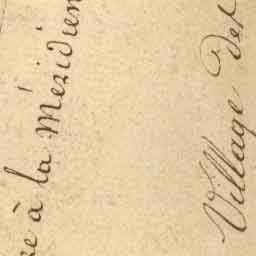 à la Méridien
Village des